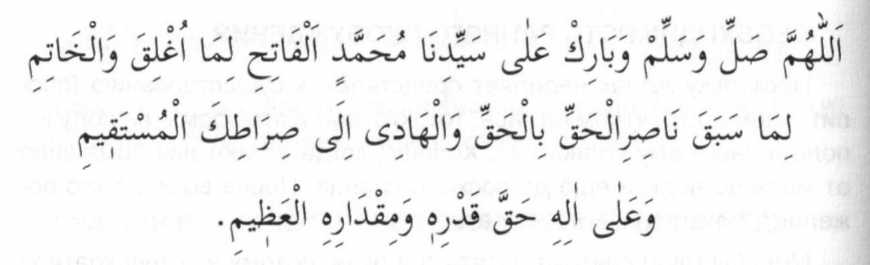 اَللّٰهُمَّ صَلِّ وَسَلِّمْ وَبَارِكْ عَلٰى سَيِّدِنَا مُحَمَّدٍ اَلْفَاتِحِ لِمَا اُغْلِقَ وَالْخَاتِمِ
لِمَا سَبَقَ نَاصِرِالْحَقِّ بِالْحَقِّ وَالْهَادِى اِلَى صِرَاطِكَ الْمُسْتَقِيمِ
وَعَلٰى اٰلِهِ حَقَّ قَدْرِهِ وَمِقْدَارِهِ الْعَظِيمِ.